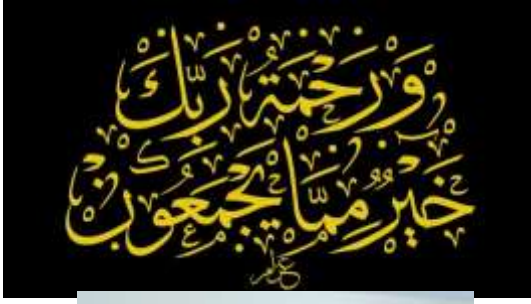 وَرَحْمَةُ رَبِّكَ
خَيْرٌ مِمَّا يَجْمَعُونَ